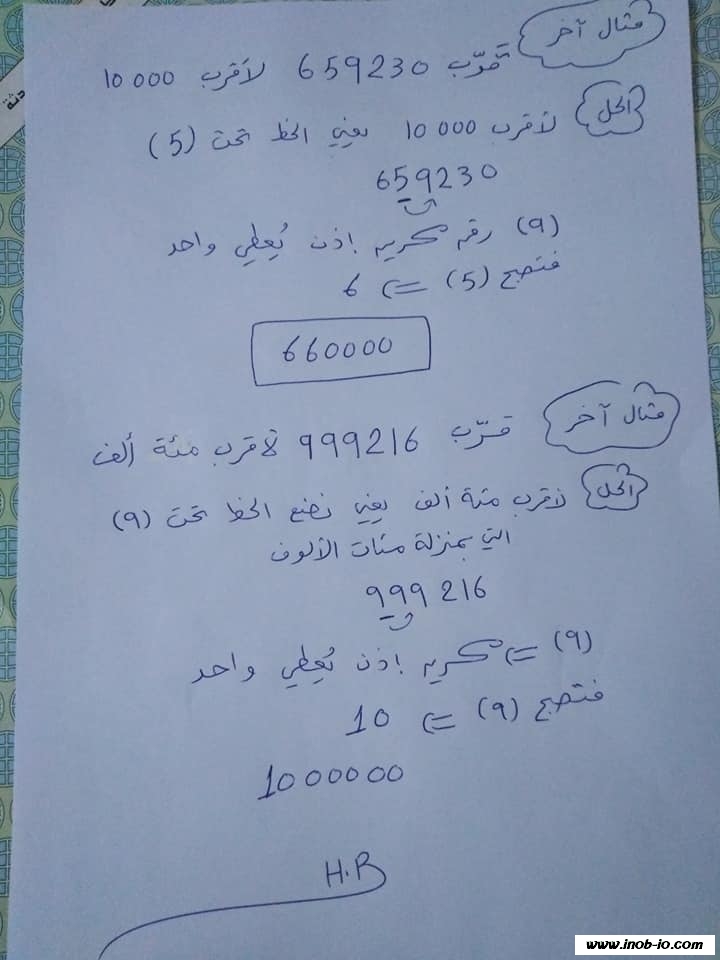 مثال آخر
قرّب 659230 لأقرب 10 000
الحل
لأقرب 10 000 يعني الخط تحت (5)
659230
(9) رقم كريم إذن يُعطي واحد
فتصبح (5) => 6
660000
مثال آخر
قرّب 999216 لأقرب مئة ألف
الحل
لأقرب مئة ألف يعني نضع الخط تحت (9)
التي بمنزلة مئات الألوف
999 216
(9) => كريم إذن يُعطي واحد
فتصبح (9) => 10
1000000
H.B
www.inob-io.com